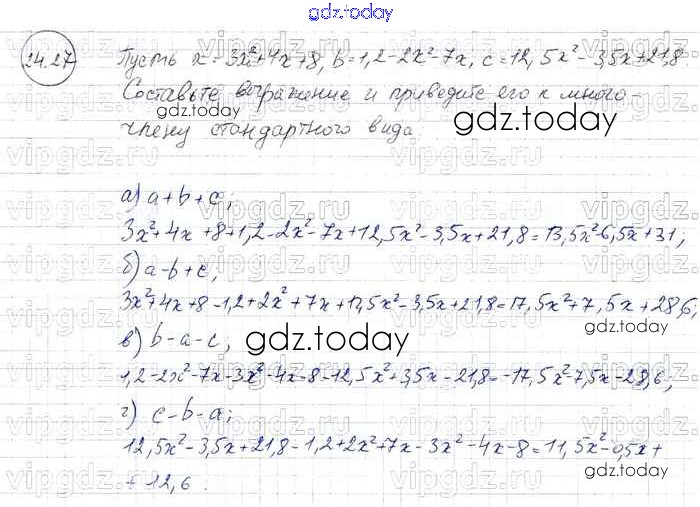 gdz.today
24.27 Пусть x = 3x²+4x+8, b=1,2-2x²-7x, c=12,5x²-3,5x+21,8
Составьте выражение и приведите его к много-
члену стандартного вида.
gdz.today
а) a+b+c;
3x²+4x+8+1,2-2x²-7x+12,5x²-3,5x+21,8=13,5x²-6,5x+31;
б) a-b+c;
3x²+4x+8-1,2+2x²+7x+12,5x²-3,5x+21,8=17,5x²+7,5x+28,6;
gdz.today
в) b-a-c;
gdz.today
1,2-2x²-7x-3x²-4x-8-12,5x²+3,5x-21,8=-17,5x²-7,5x-28,6;
г) c-b-a;
12,5x²-3,5x+21,8-1,2+2x²+7x-3x²-4x-8=11,5x²-0,5x+
+12,6.
gdz.today